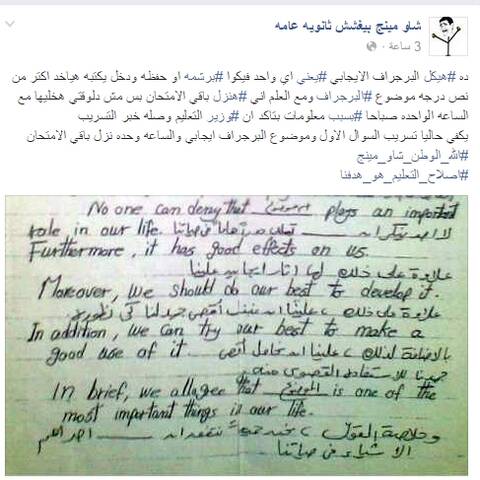 شاو مينج بيغشش ثانويه عامه
3 ساعة ·
ده #هيكل البرجراف الايجابي #يعني اي واحد فيكوا #برشمه او حفظه ودخل يكتبه هياخد اكتر من
نص درجه موضوع #البرجراف ومع العلم اني #هنزل باقي الامتحان بس مش دلوقتي هخليها مع
الساعه الواحده صباحا #بسبب معلومات بتاكد ان #وزير التعليم وصله خبر التسريب
يكفي حاليا تسريب السوال الاول وموضوع البرجراف ايجابي والساعه وحده نزل باقي الامتحان
#الله_الوطن_شاو_مينج
#اصلاح_التعليم_هو_هدفنا
No one can deny that الموضوع plays an important
role in our life.
Furthermore, it has good effects on us.
علاوة على ذلك لها اثار ايجابيه علينا
Moreover, we should do our best to develop it.
علاوة على ذلك علينا ان نبذل أقصى جهدنا لكى
In addition, we can try our best to make a
good use of it. بالاضافة لذلك علينا ان نحاول أقصى
جهدنا للاستفادة القصوى منه
In brief, we all agree that الموضوع is one of the
most important things is our life.
وخلاصة القول
الاشياء فى حياتنا